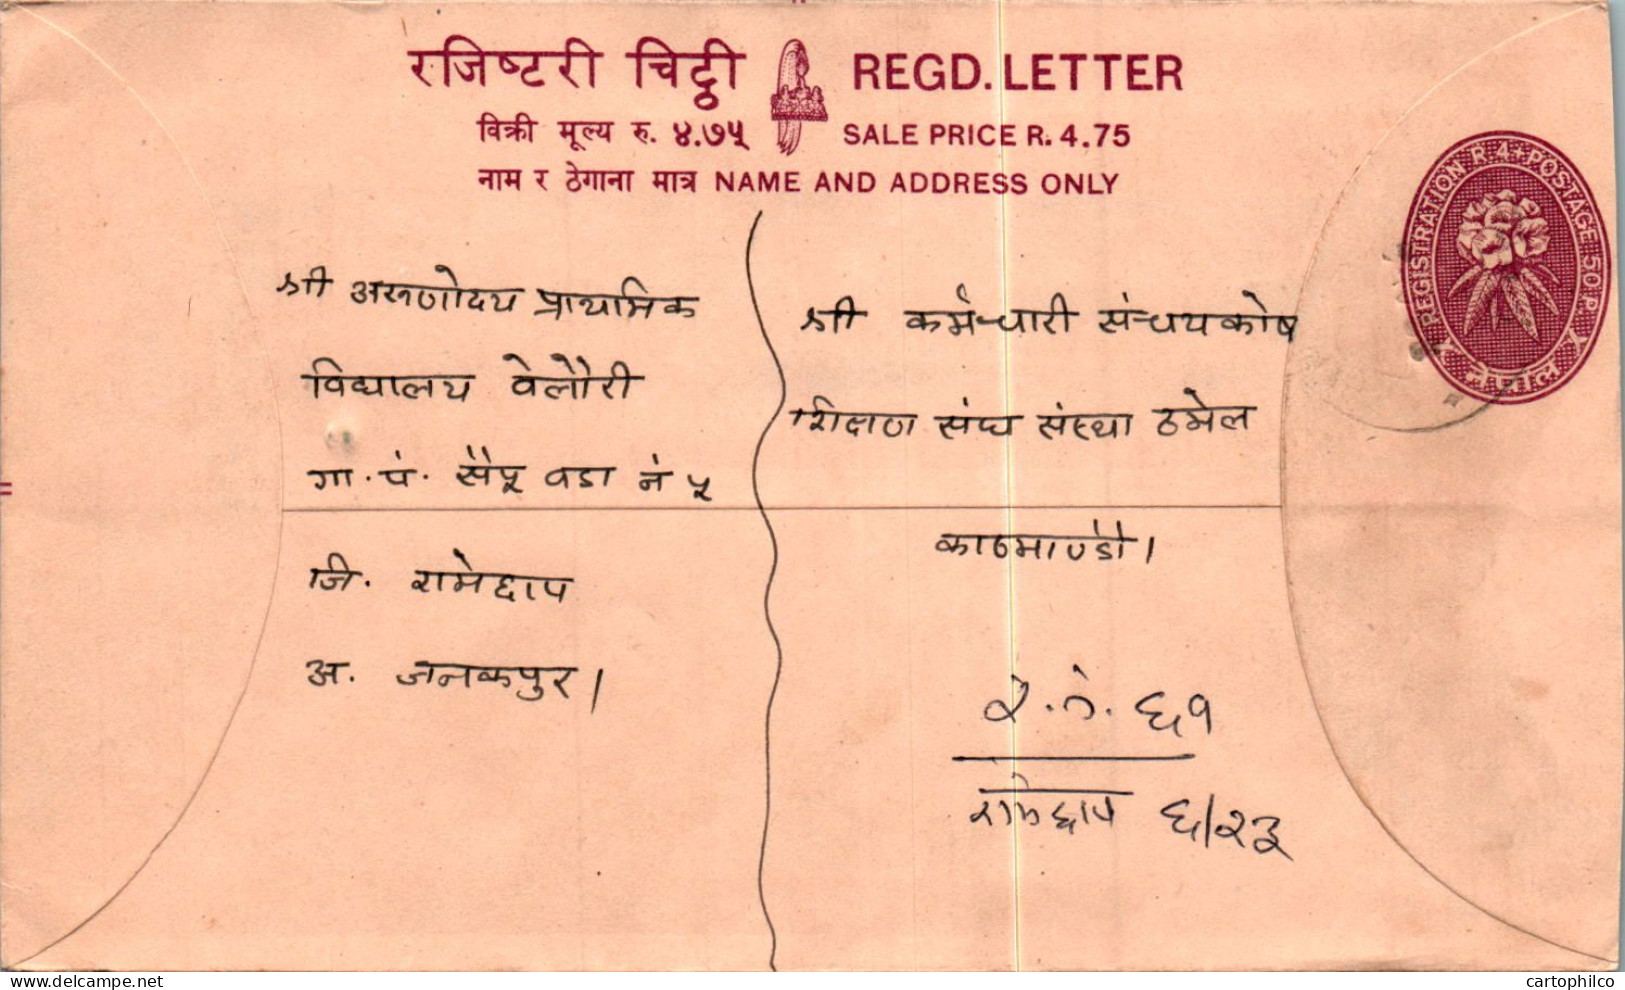 रजिष्टरी चिट्ठी REGD. LETTER
विक्री मूल्य रु. ४.७५ SALE PRICE R. 4.75
नाम र ठेगाना मात्र NAME AND ADDRESS ONLY
REGISTRATION R 4 + POSTAGE 50 P
नेपाल
श्री अरुणोदय प्राथमिक
विद्यालय वेलौरी
गा. पं. सैपू वडा नं ५
जि. रामेछाप
अ. जनकपुर।
श्री कर्मचारी संचयकोष
शिक्षण संघ संस्था ठमेल
काठमाण्डौ।
रे. नं. ६१
रामेछाप ६/२३
cartophilco